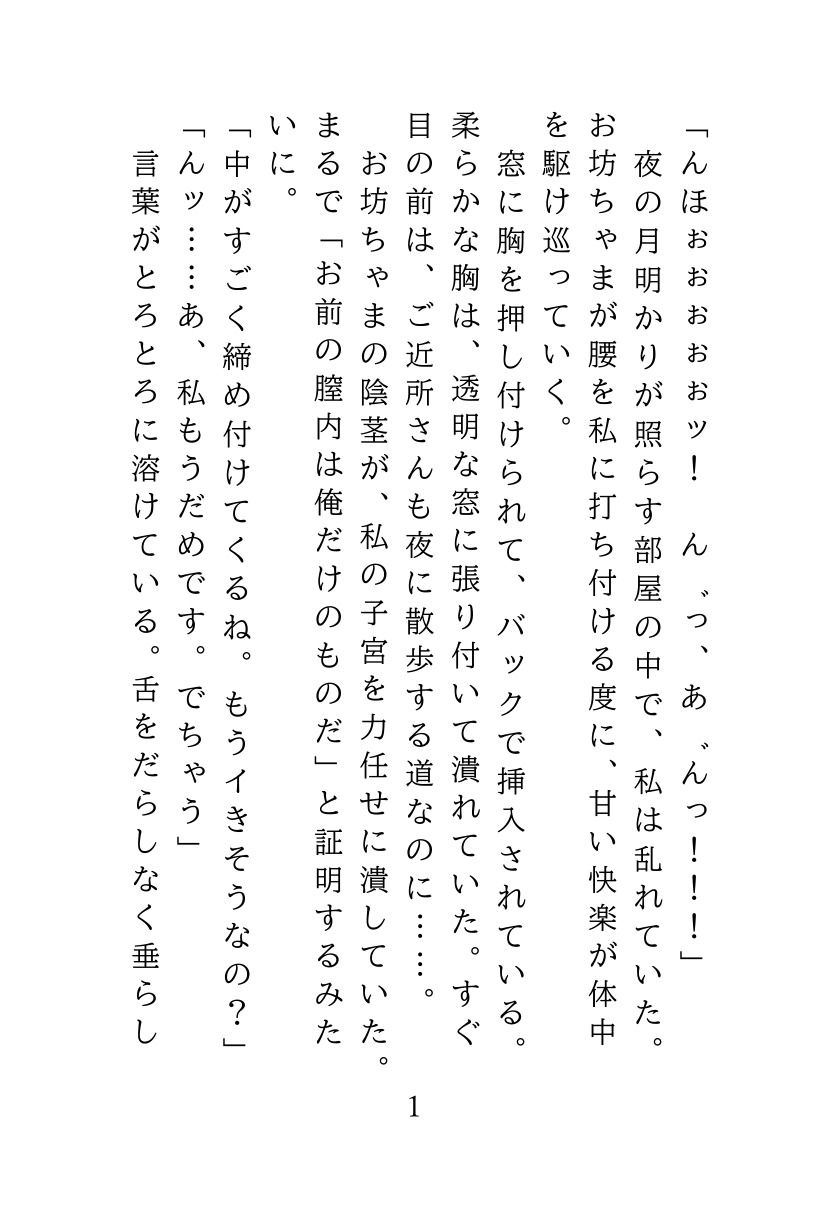 「んほぉぉぉぉぉッ！　ん゛っ、あ゛んっ！！！」
　夜の月明かりが照らす部屋の中で、私は乱れていた。
お坊ちゃまが腰を私に打ち付ける度に、甘い快楽が体中
を駆け巡っていく。
　窓に胸を押し付けられて、バックで挿入されている。
柔らかな胸は、透明な窓に張り付いて潰れていた。すぐ
目の前は、ご近所さんも夜に散歩する道なのに……。
　お坊ちゃまの陰茎が、私の子宮を力任せに潰していた。
まるで「お前の膣内は俺だけのものだ」と証明するみた
いに。
「中がすごく締め付けてくるね。もうイきそうなの？」
「んッ……あ、私もうだめです。でちゃう」
　言葉がとろとろに溶けている。舌をだらしなく垂らし
1